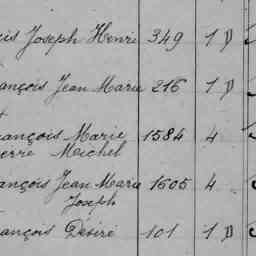 is Joseph Henri 349 1 D
ançois Jean Marie 216 1 D
rançois Marie 1584 4
erre Michel
ançois Jean Marie 1605 4
Joseph
ançois Désiré 101 1 D